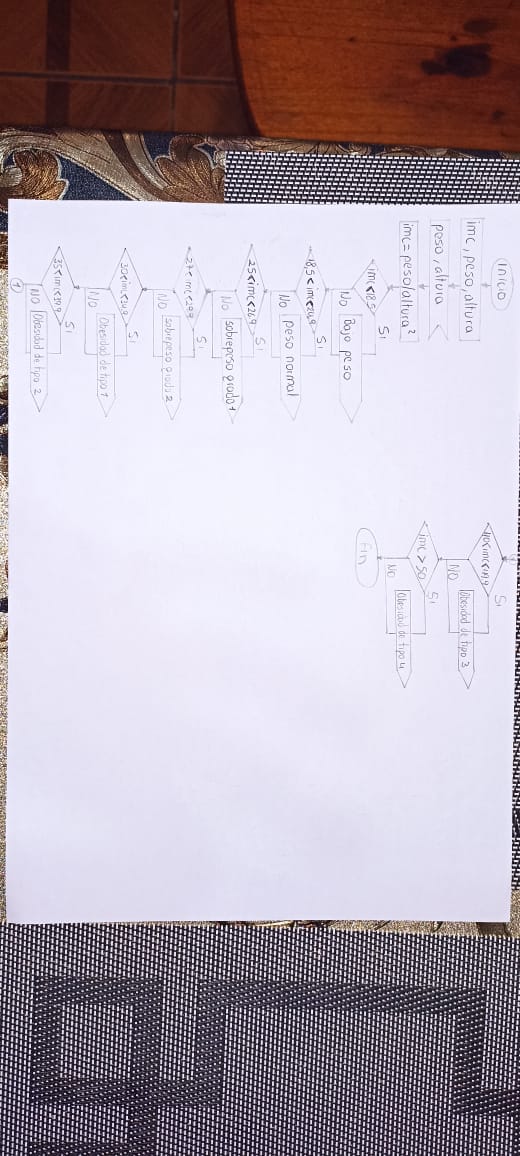 Inicio
imc, peso, altura
peso, altura
imc = peso/altura²
imc < 18.5
Si
No
Bajo peso
18,5 < imc < 24,9
Si
No
peso normal
25 < imc < 26.9
Si
No
sobrepeso grado 1
27 < imc < 29.9
Si
NO
sobrepeso grado 2
30 < imc < 34.9
Si
NO
Obesidad de tipo 1
35 < imc < 39.9
Si
NO
Obesidad de tipo 2
1
1
40 < imc < 49.9
Si
NO
Obesidad de tipo 3
imc > 50
Si
NO
Obesidad de tipo 4
Fin